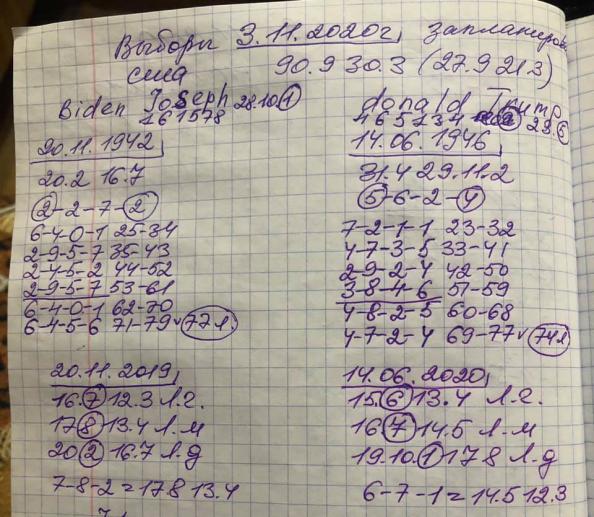 Выборы 3.11.2020г, запланиров
сила 90.9 30.3 (27.9 21.3)
Biden Joseph 28.10.1
761578
donald Трump
465734 23.6
20.11.1942
20.2 16.7
2-2-7-2
6-4-0-1 25-34
2-9-5-7 35-43
2-4-5-2 44-52
2-9-5-7 53-61
6-4-0-1 62-70
6-4-5-6 71-79 77л.
14.06.1946
31.4 29.11.2
5-6-2-4
7-2-1-1 23-32
4-7-3-5 33-41
2-9-2-4 42-50
3-8-4-6 51-59
4-8-2-5 60-68
4-7-2-4 69-77 74л
20.11.2019
16.7 12.3 Л.г.
17 8 13.4 Л.м
20 2 16.7 Л.д
7-8-2=17.8 13.4
14.06.2020
15.6 13.4 Л.г.
16.7 14.5 Л.м
19.10.1 17.8 Л.д
6-7-1=14.5 12.3